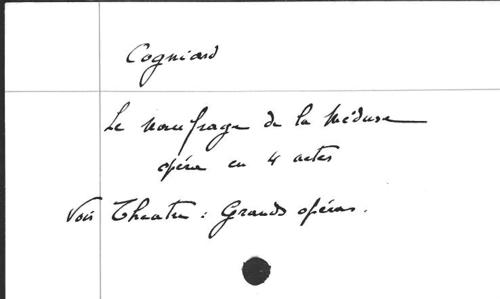 Cogniard
Le naufrage de la Méduse
opéra en 4 actes
Voir Theatre : Grands opéras.